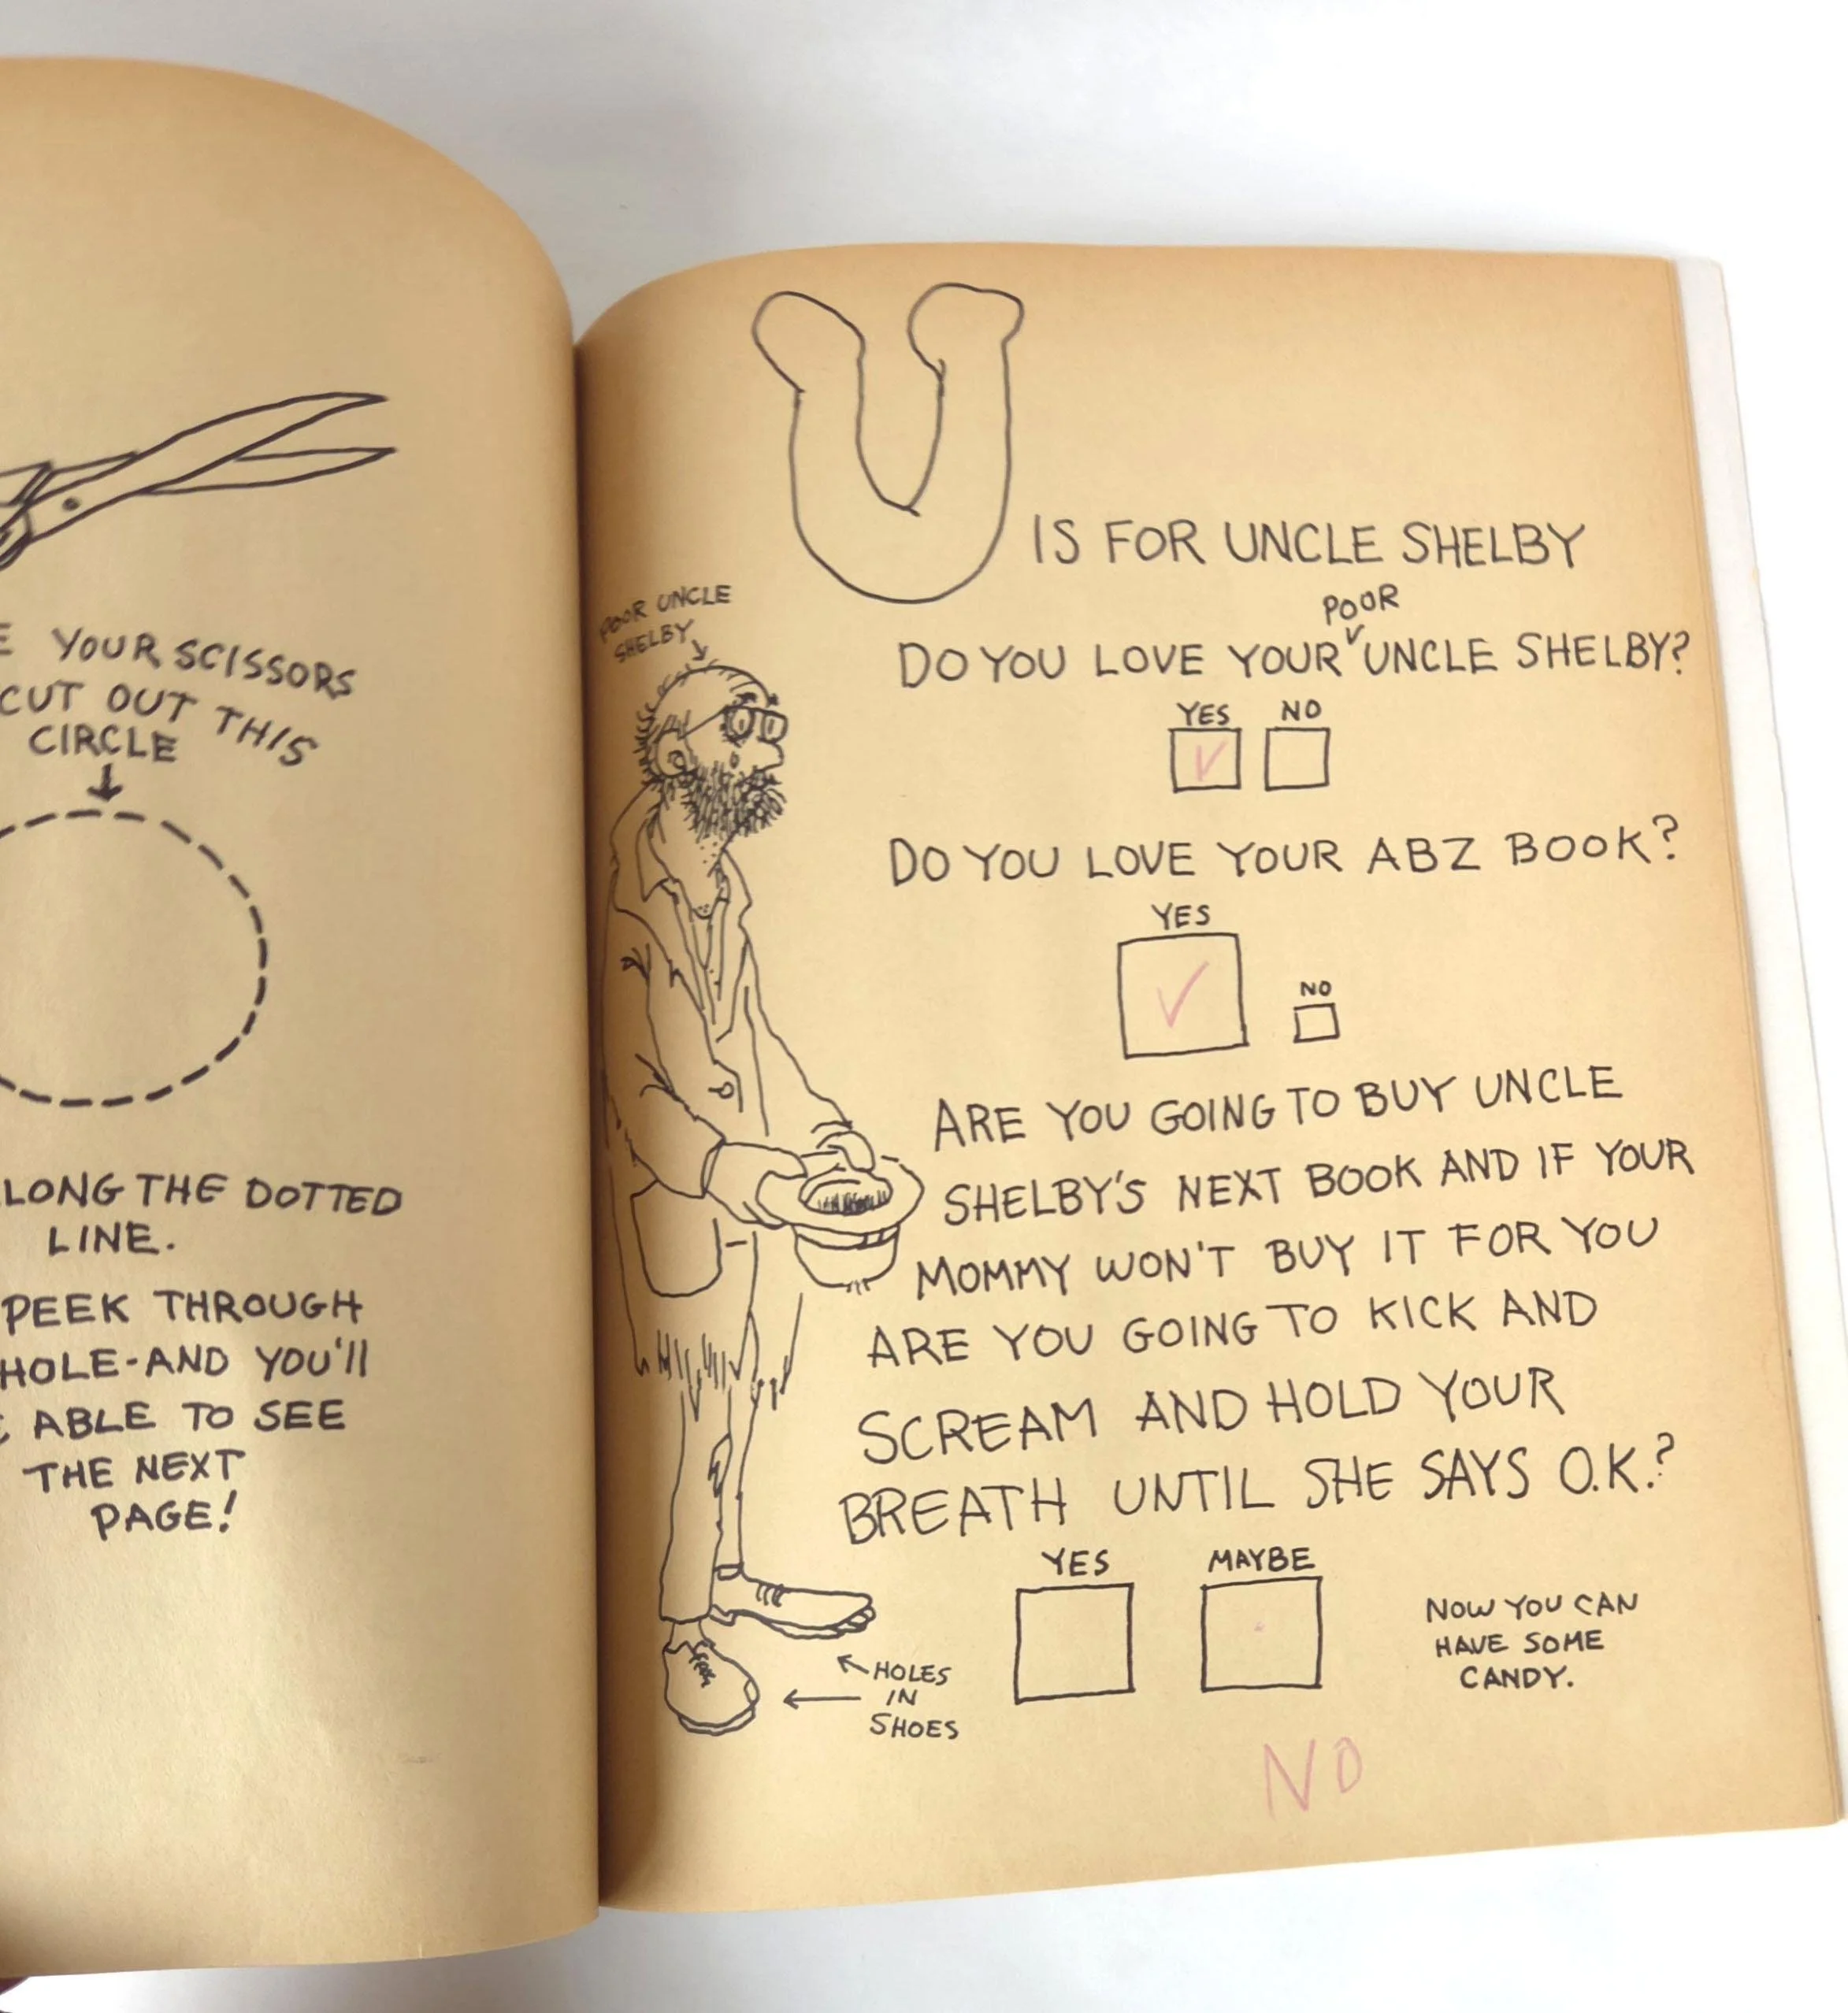 YOUR SCISSORS
CUT OUT THIS
CIRCLE
THE DOTTED
LINE.
PEEK THROUGH
HOLE-AND YOU'll
ABLE TO SEE
THE NEXT
PAGE!
U IS FOR UNCLE SHELBY
POOR UNCLE
SHELBY
POOR
DO YOU LOVE YOUR UNCLE SHELBY?
YES NO
DO YOU LOVE YOUR ABZ BOOK?
YES
NO
ARE YOU GOING TO BUY UNCLE
SHELBY'S NEXT BOOK AND IF YOUR
MOMMY WON'T BUY IT FOR YOU
ARE YOU GOING TO KICK AND
SCREAM AND HOLD YOUR
BREATH UNTIL SHE SAYS O.K.?
YES MAYBE
NOW YOU CAN
HAVE SOME
CANDY.
HOLES
IN
SHOES
NO